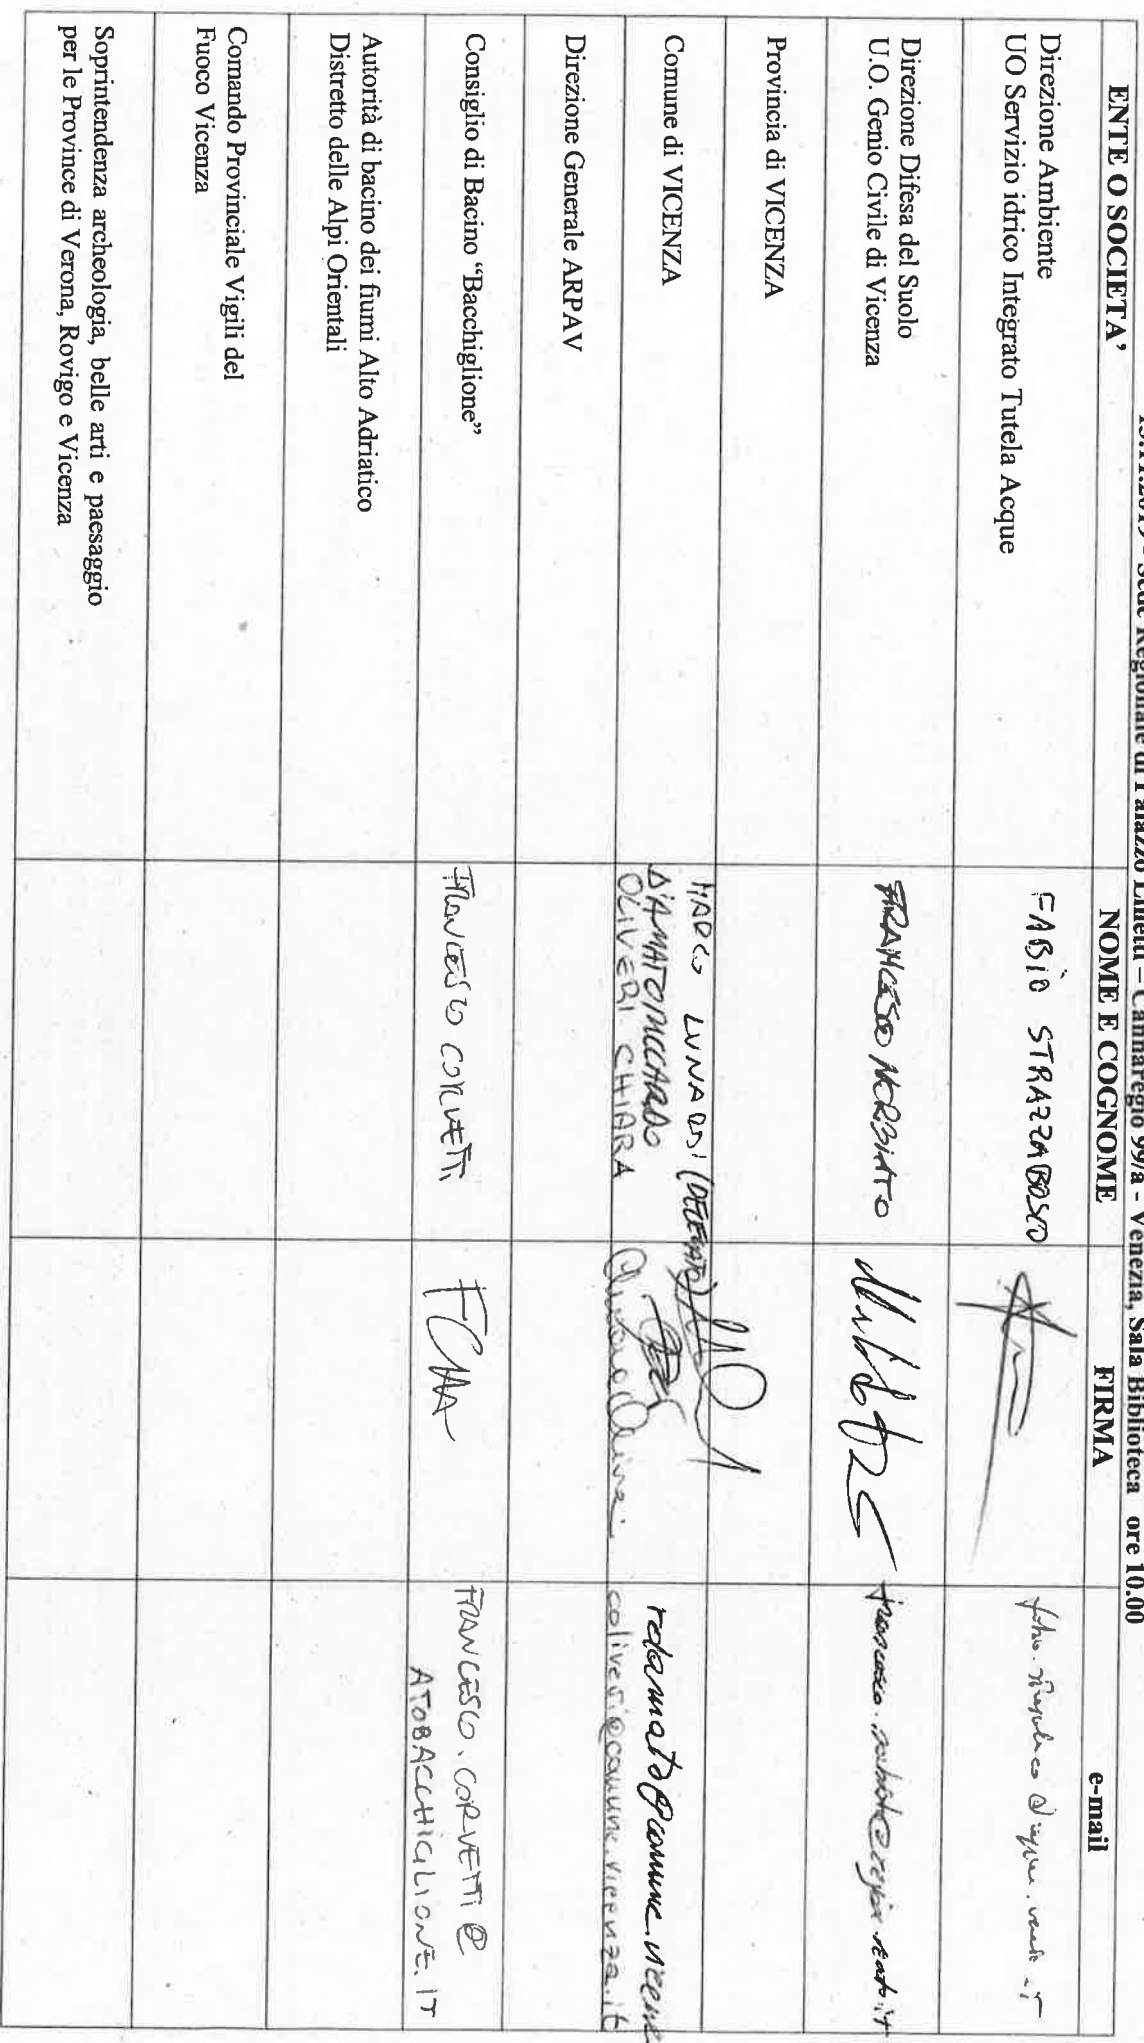 Sede Regionale di Palazzo Linetti – Cannaregio 99/a - Venezia, Sala Biblioteca ore 10.00
ENTE O SOCIETA' NOME E COGNOME FIRMA e-mail
Direzione Ambiente
UO Servizio idrico Integrato Tutela Acque
FABIO STRAZZABOSCO
Direzione Difesa del Suolo
U.O. Genio Civile di Vicenza
FRANCESCO NORBIATO
Provincia di VICENZA
Comune di VICENZA
MARCO LUNARDI (DELEGATO)
D'AMATO RICCARDO
OLIVERI CHIARA
rdamato@comune.vicenza
coliveri@comune.vicenza.it
Direzione Generale ARPAV
Consiglio di Bacino “Bacchiglione”
FRANCESCO CORVETTI
FRANCESCO.CORVETTI@
ATOBACCHIGLIONE.IT
Autorità di bacino dei fiumi Alto Adriatico
Distretto delle Alpi Orientali
Comando Provinciale Vigili del
Fuoco Vicenza
Soprintendenza archeologia, belle arti e paesaggio
per le Province di Verona, Rovigo e Vicenza